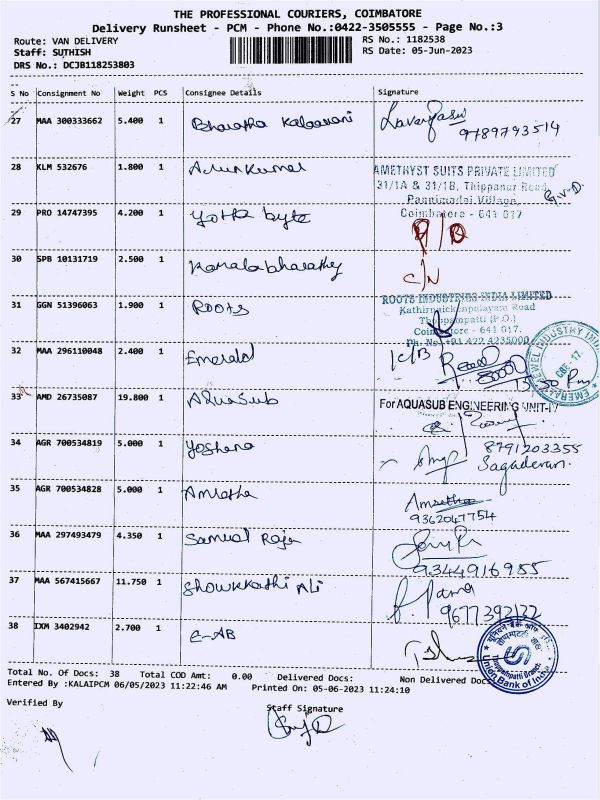 THE PROFESSIONAL COURIERS, COIMBATORE
Delivery Runsheet - PCM - Phone No.:0422-3505555 - Page No.:3
Route: VAN DELIVERY
RS No.: 1182538
Staff: SUTHISH
RS Date: 05-Jun-2023
DRS No.: DCJB118253803
S No Consignment No Weight PCS Consignee Details Signature
27 MAA 300333662 5.400 1 Bharatha Kalaavani
9789793514
28 KLM 532676 1.800 1 Arunkumar
AMETHYST SUITS PRIVATE LIMITED
31/1A & 31/1B, Thippanur Road
Pannimadai Village,
Coimbatore - 641 017
29 PRO 14747395 4.200 1 yotta byte
30 SPB 10131719 2.500 1 Kamalabharathy
C/N
31 GGN 51396063 1.900 1 ROOTS
ROOTS INDUSTRIES INDIA LIMITED
Kathirnaickenpalayam Road
Thoppampatti (P.O.)
Coimbatore - 641 017.
Ph. No: +91 422 4235000
32 MAA 296110048 2.400 1 Emerald
EMERALD JEWEL INDUSTRY
CBE - 17
33 AMD 26735087 19.800 1 AquaSub
For AQUASUB ENGINEERING UNIT-IV
34 AGR 700534819 5.000 1 Yoshana
8791203355
Sagadevan.
35 AGR 700534828 5.000 1 Amratha
Amretha
9362047754
36 MAA 297493479 4.350 1 Samual Raja
9344916955
37 MAA 567415667 11.750 1 Showkkathi Ali
9677393122
38 IXM 3402942 2.700 1 E-AB
Union Bank of India
Total No. Of Docs: 38 Total COD Amt: 0.00 Delivered Docs: Non Delivered Docs
Entered By :KALAIPCM 06/05/2023 11:22:46 AM Printed On: 05-06-2023 11:24:10
Verified By
Staff Signature